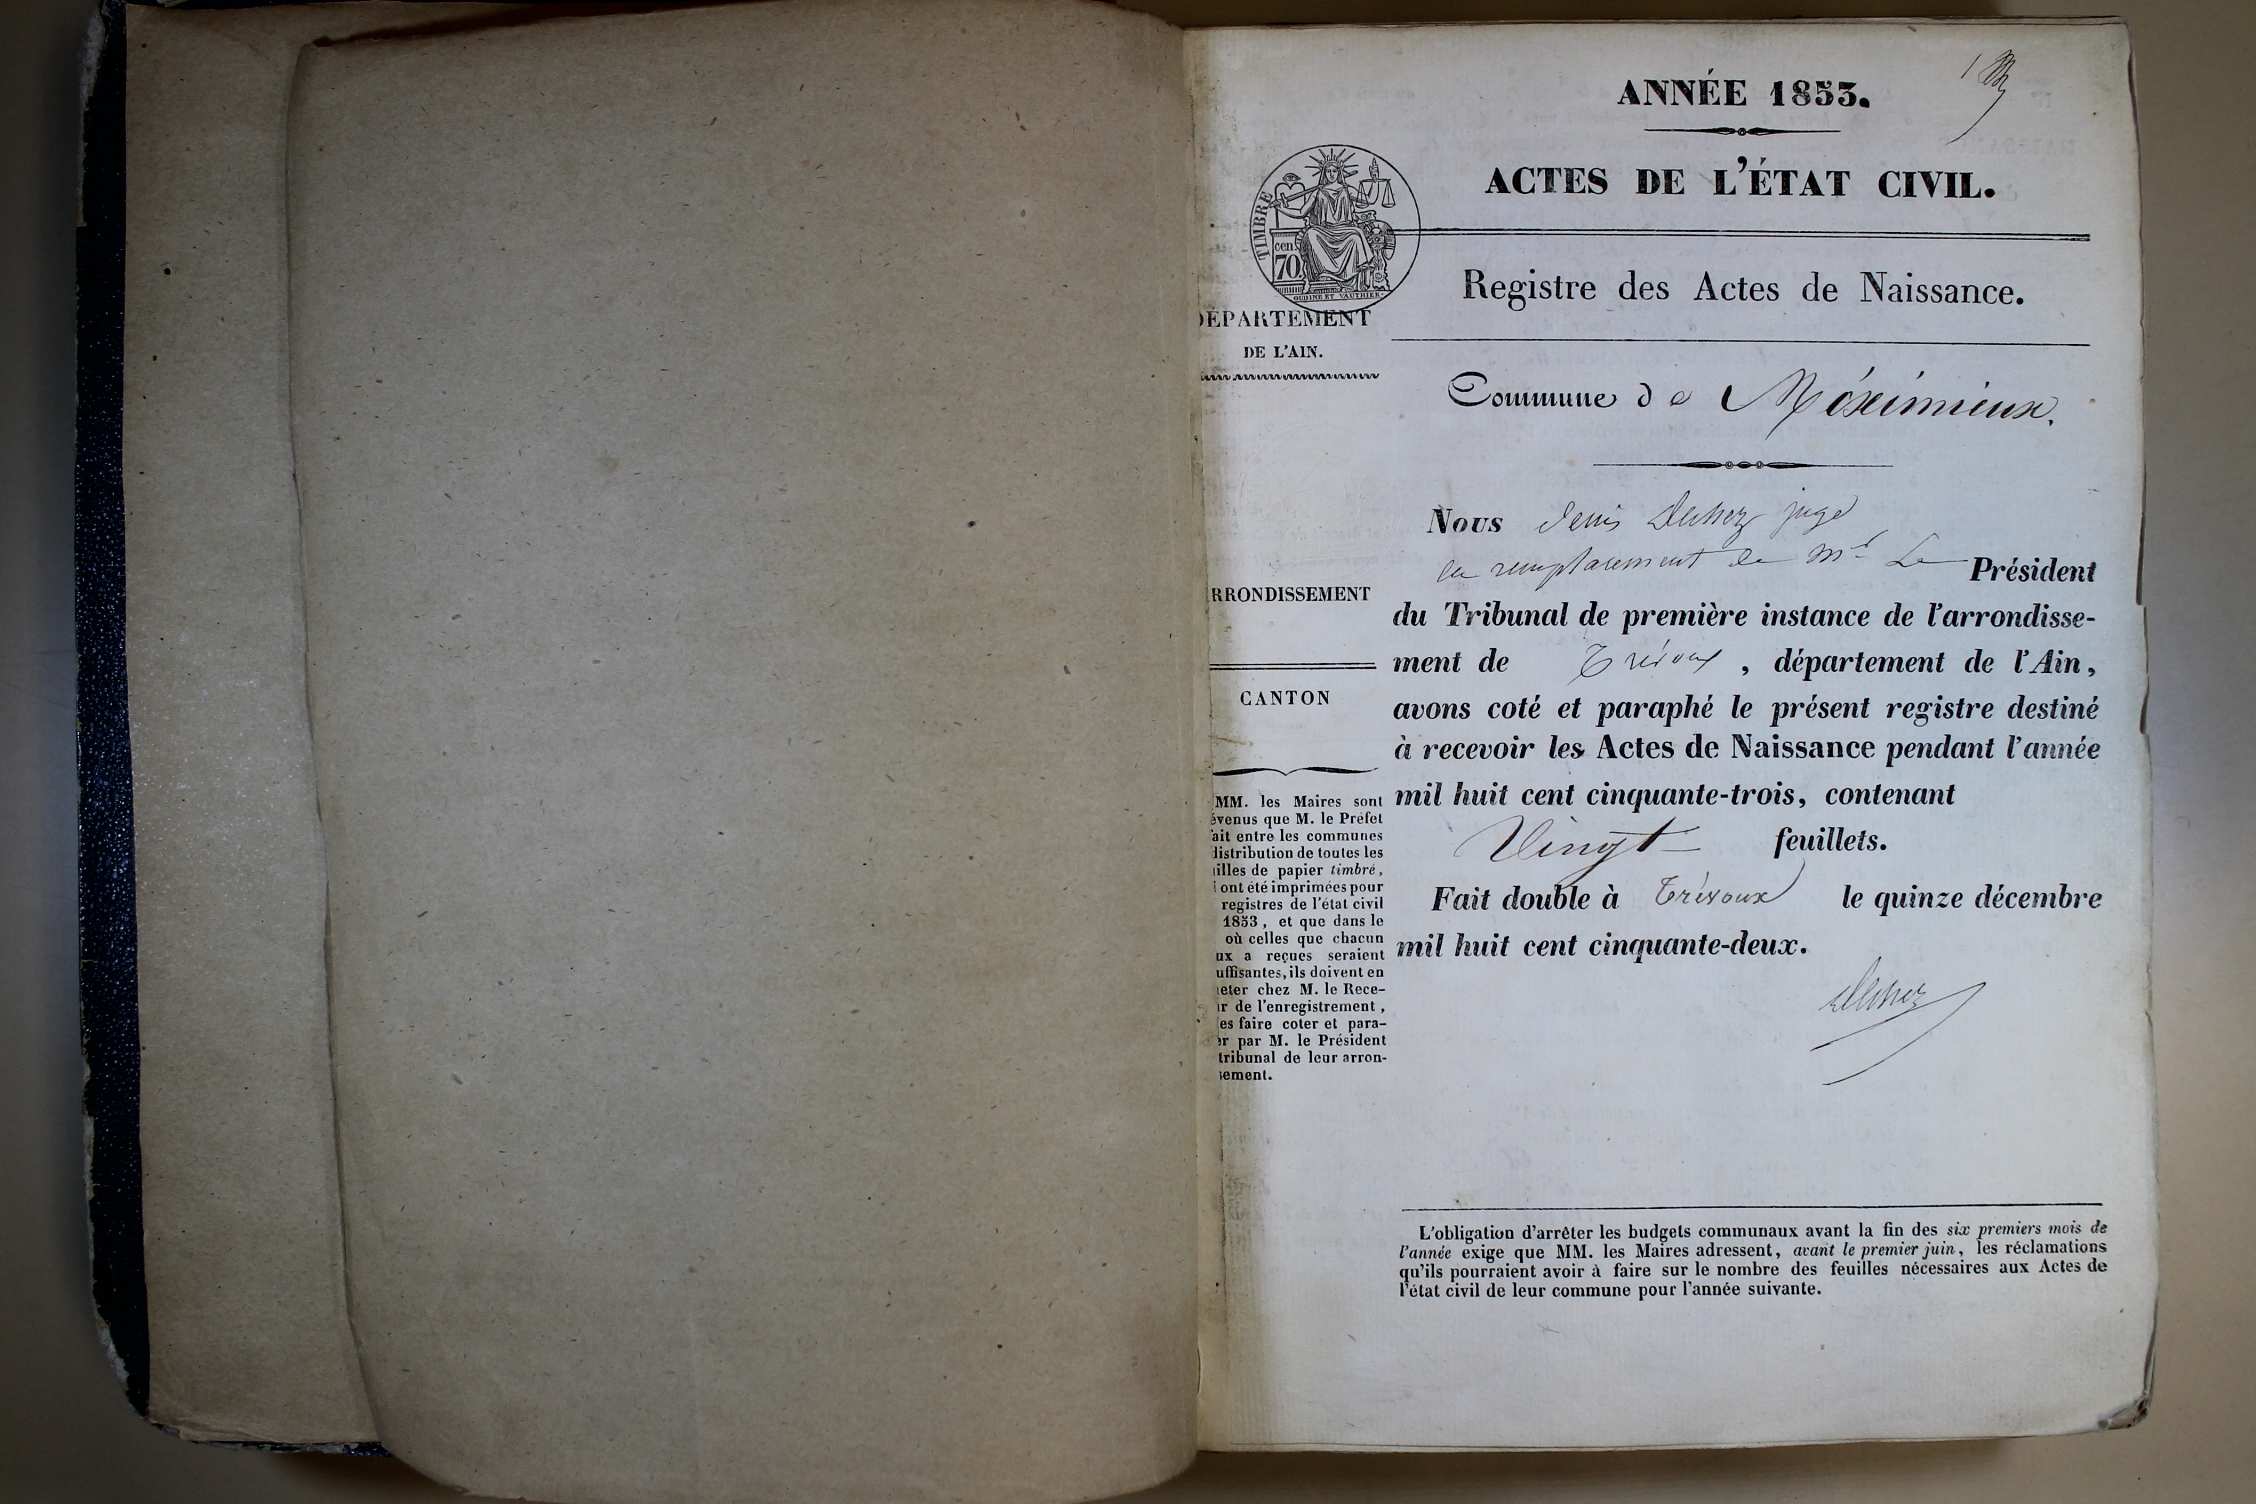 ANNÉE 1853.
1
ACTES DE L'ÉTAT CIVIL.
TIMBRE
cen.
70
OUDINE ET VAUTHIER
Registre des Actes de Naissance.
DÉPARTEMENT
DE L'AIN.
Commune de Méximieux.
RRONDISSEMENT
CANTON
MM. les Maires sont
évenus que M. le Préfet
fait entre les communes
distribution de toutes les
uilles de papier timbré,
i ont été imprimées pour
registres de l'état civil
1853, et que dans le
où celles que chacun
ux a reçues seraient
uffisantes, ils doivent en
heter chez M. le Rece-
ur de l'enregistrement,
les faire coter et para-
er par M. le Président
tribunal de leur arron-
sement.
Nous Denis juge
en remplacement de Mr Le Président
du Tribunal de première instance de l'arrondisse-
ment de Trévoux, département de l'Ain,
avons coté et paraphé le présent registre destiné
à recevoir les Actes de Naissance pendant l'année
mil huit cent cinquante-trois, contenant
Vingt feuillets.
Fait double à Trévoux le quinze décembre
mil huit cent cinquante-deux.
L'obligation d'arrêter les budgets communaux avant la fin des six premiers mois de
l'année exige que MM. les Maires adressent, avant le premier juin, les réclamations
qu'ils pourraient avoir à faire sur le nombre des feuilles nécessaires aux Actes de
l'état civil de leur commune pour l'année suivante.